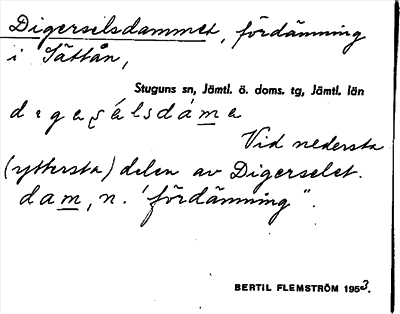 Digerselsdammet, fördämning
i Tättån,
Stuguns sn, Jämtl. ö. doms. tg, Jämtl. län
Vid nedersta
(yttersta) delen av Digerselet.
dam, n. "fördämning".
BERTIL FLEMSTRÖM 1953.